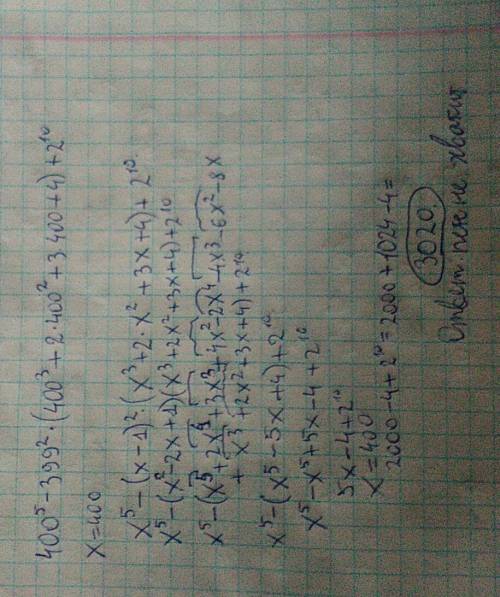 400⁵-399²·(400³+2·400²+3·400+4)+2¹⁰
x=400
x⁵-(x-1)²·(x³+2·x²+3x+4)+2¹⁰
x⁵-(x²-2x+1)(x³+2x²+3x+4)+2¹⁰
x⁵-(x⁵+2x⁴+3x³+4x²-2x⁴-4x³-6x²-8x
+x³+2x²+3x+4)+2¹⁰
x⁵-(x⁵-5x+4)+2¹⁰
x⁵-x⁵+5x-4+2¹⁰
5x-4+2¹⁰
x=400
2000-4+2¹⁰=2000+1024-4=
3020
Ответ: не хватит